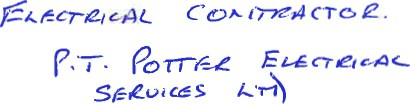 ELECTRICAL CONTRACTOR.
P.T. POTTER ELECTRICAL
SERVICES LTD